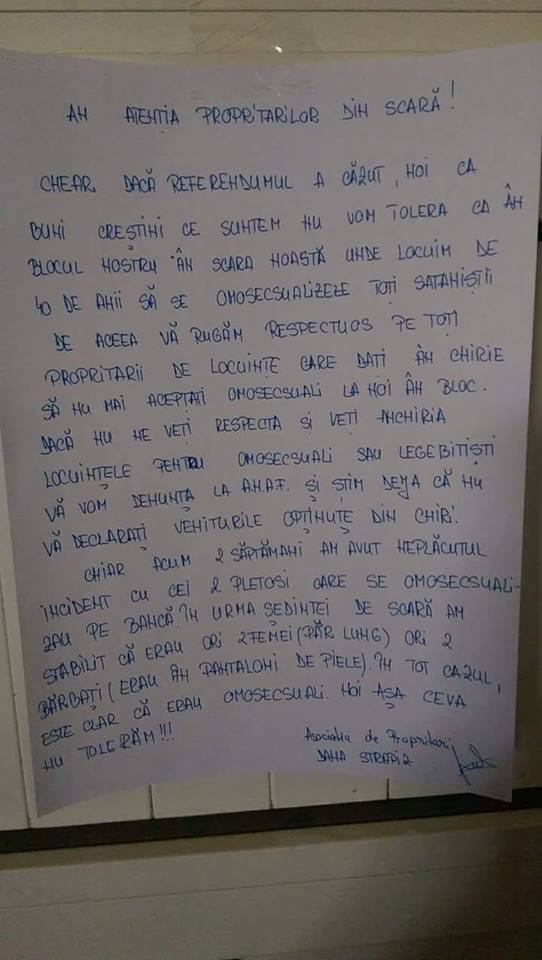 AN ATENȚIA PROPRITARILOR DIN SCARĂ!
CHEAR DACĂ REFERENDUMUL A CĂZUT, NOI CA
BUNI CREȘTINI CE SUNTEM NU VOM TOLERA CA ÂN
BLOCUL NOSTRU ÂN SCARA NOASTĂ UNDE LOCUIM DE
40 DE ANII SĂ SE OMOSECSUALIZEZE TOȚI SATANIȘTII
DE ACEEA VĂ RUGĂM RESPECTUOS PE TOȚI
PROPRITARII DE LOCUINȚE CARE DATI ÂN CHIRIE
SĂ NU MAI ACEPTAȚI OMOSECSUALI LA NOI ÂN BLOC.
DACĂ NU NE VEȚI RESPECTA SI VEȚI ANCHIRIA
LOCUINȚELE PENTRU OMOSECSUALI SAU LEGEBITIȘTI
VĂ VOM DENUNȚA LA A.N.A.F. ȘI ȘTIM DEJA CĂ NU
VĂ DECLARAȚI VENITURILE OPȚINUTE DIN CHIRI.
CHIAR ACUM 2 SĂPTĂMANI AM AVUT NEPLĂCUTUL
INCIDENT CU CEI 2 PLETOSI CARE SE OMOSECSUALI-
ZAU PE BANCĂ. ÎN URMA ȘEDINTEI DE SCARĂ AM
STABILIT CĂ ERAU ORI 2 FEMEI (PĂR LUNG) ORI 2
BĂRBAȚI (ERAU ÂN PANTALONI DE PIELE). ÎN TOT CAZUL,
ESTE CLAR CĂ ERAU OMOSECSUALI. NOI AȘA CEVA
NU TOLERĂM!!!
Asociatia de Propritari
DANA STRAPI 2